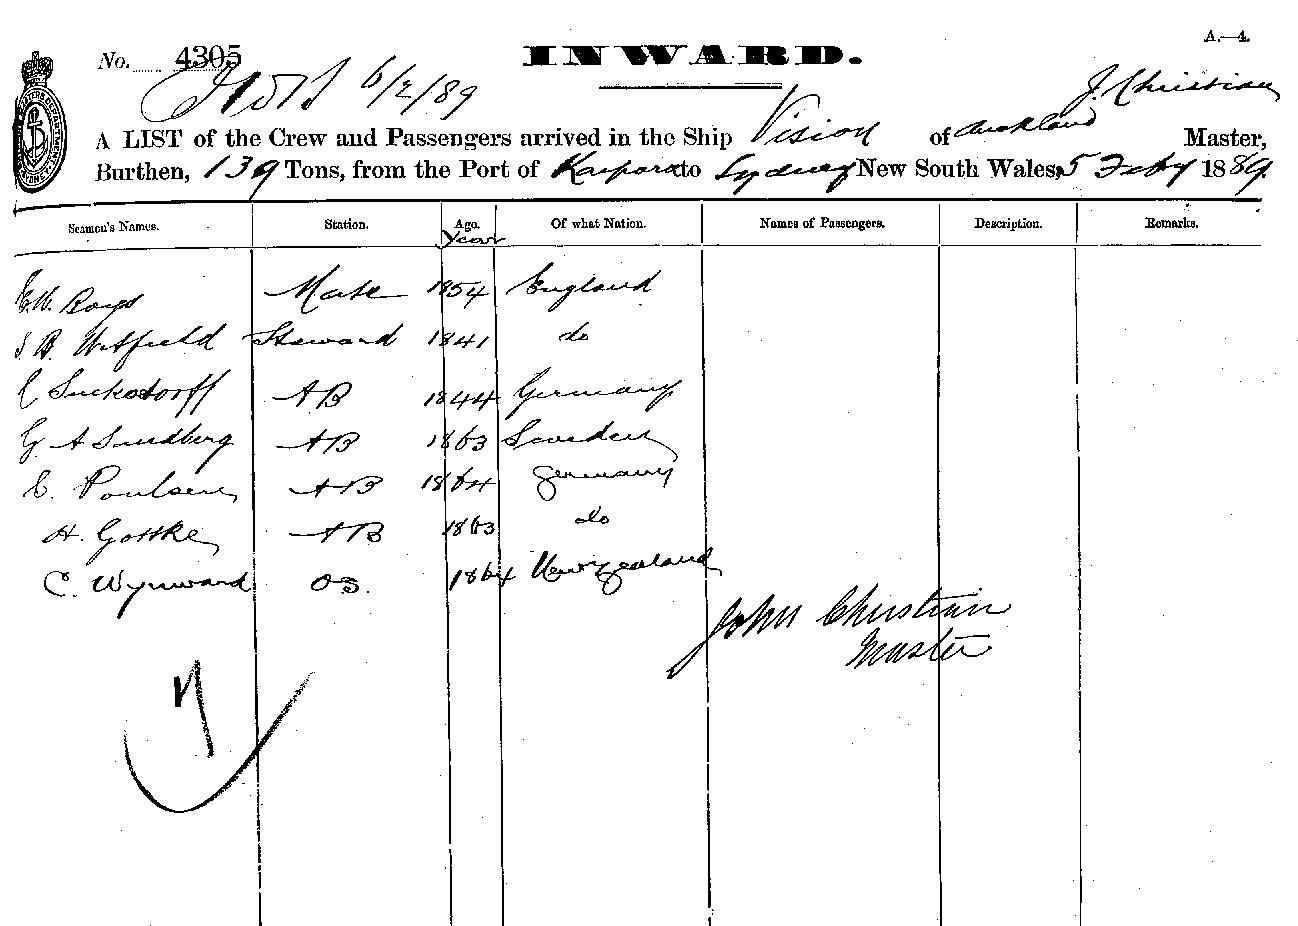 A.—4.
No. 4305 INWARD.
6/2/89
J. Christian
A LIST of the Crew and Passengers arrived in the Ship Vision of Auckland Master,
Burthen, 139 Tons, from the Port of to Sydney New South Wales, 5 Feby 1889.
Seamen's Names. Station. Age. Of what Nation. Names of Passengers. Description. Remarks.
Year
E.W. Boyd Mate 1854 England
B. Witfield Steward 1841 do
Suckstorff AB 1844 Germany
G A Sundberg AB 1863 Sweden
E. Poulsen AB 1864 Germany
H. Gottke AB 1863 do
C. Wynward OS. 1864 New Zealand
John Christian
Master
7